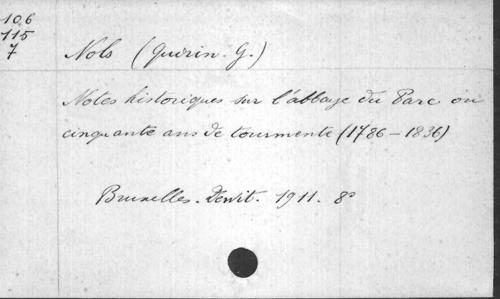 106
115
7
Nols (Quirin. G.)
Notes historiques sur l'abbaye du Parc ou
cinquante ans de tourmente (1786-1836)
Bruxelles. Dewit. 1911. 8º